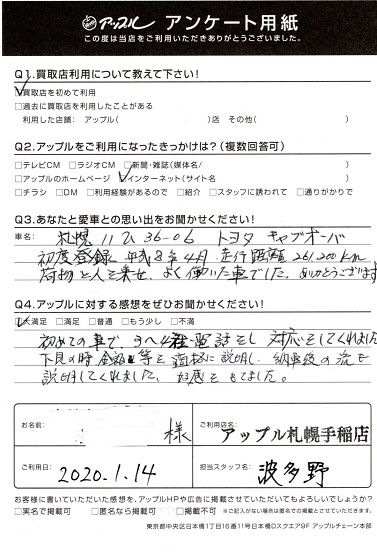 アップル アンケート用紙
この度は当店をご利用いただきありがとうございました。
Q1.買取店利用について教えて下さい!
☑買取店を初めて利用
□過去に買取店を利用したことがある
利用した店舗： アップル( )店 その他( )
Q2.アップルをご利用になったきっかけは?(複数回答可)
□テレビCM □ラジオCM □新聞・雑誌(媒体名/ )
□アップルのホームページ ☑インターネット(サイト名 )
□チラシ □DM □利用経験があるので □紹介 □スタッフに誘われて □通りがかりで
Q3.あなたと愛車との思い出をお聞かせください!
車名: 札幌 11 ひ 36-06 トヨタ キャブオーバ
初度登録 平成8年4月 走行距離 261,200km
荷物と人を乗せ、よく働いた車でした。ありがとうございます
Q4.アップルに対する感想をぜひお聞かせください!
☑大満足 □満足 □普通 □もう少し □不満
初めての事で、 電話をし 対応をしてくれました
下見の時 金額等を 説明し、納車後の流を
説明してくれました、好感をもてました。
お名前: 様
ご利用店名: アップル札幌手稲店
ご利用日: 2020.1.14
担当スタッフ名: 波多野
お客様に書いていただいた感想を、アップルHPや広告に掲載させていただいてもよろしいでしょうか?
□実名で掲載可 □匿名なら掲載可 □掲載不可 ※ご記入がない場合は匿名での掲載とさせていただきます。
東京都中央区日本橋1丁目16番11号日本橋Dスクエア9F アップルチェーン本部